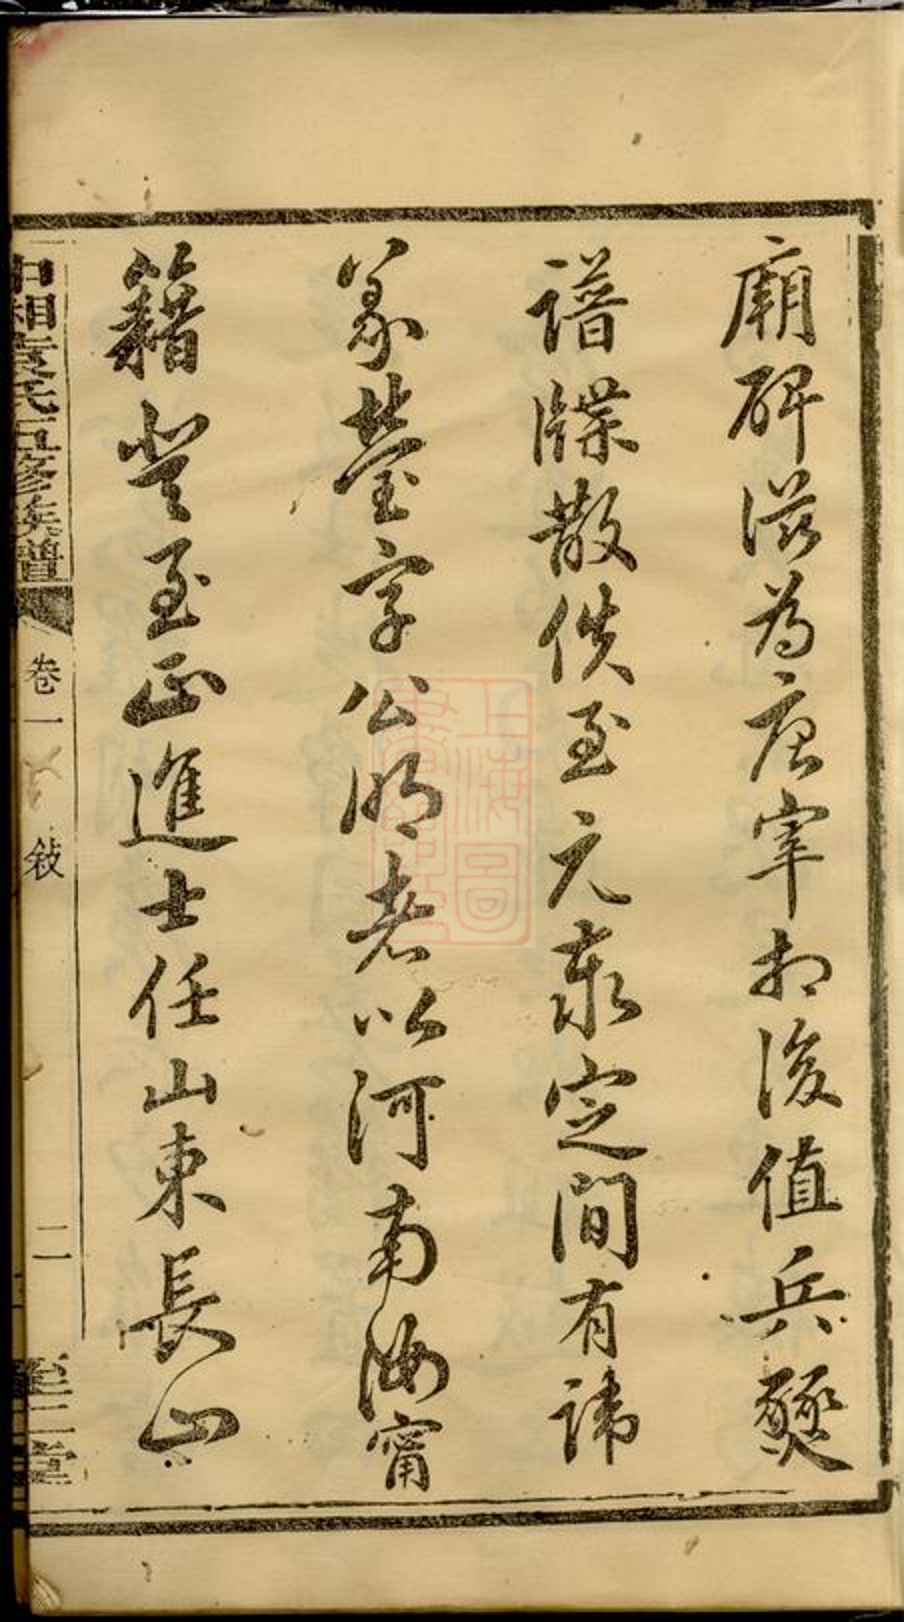 廟碑滋為唐宰相後值兵燹
譜牒散佚至元泰定間有諱
篆臺字公明者以河南汝甯
籍登至正進士任山東長山
中湘袁氏五修族譜
卷一
敍
二
堂
上海圖